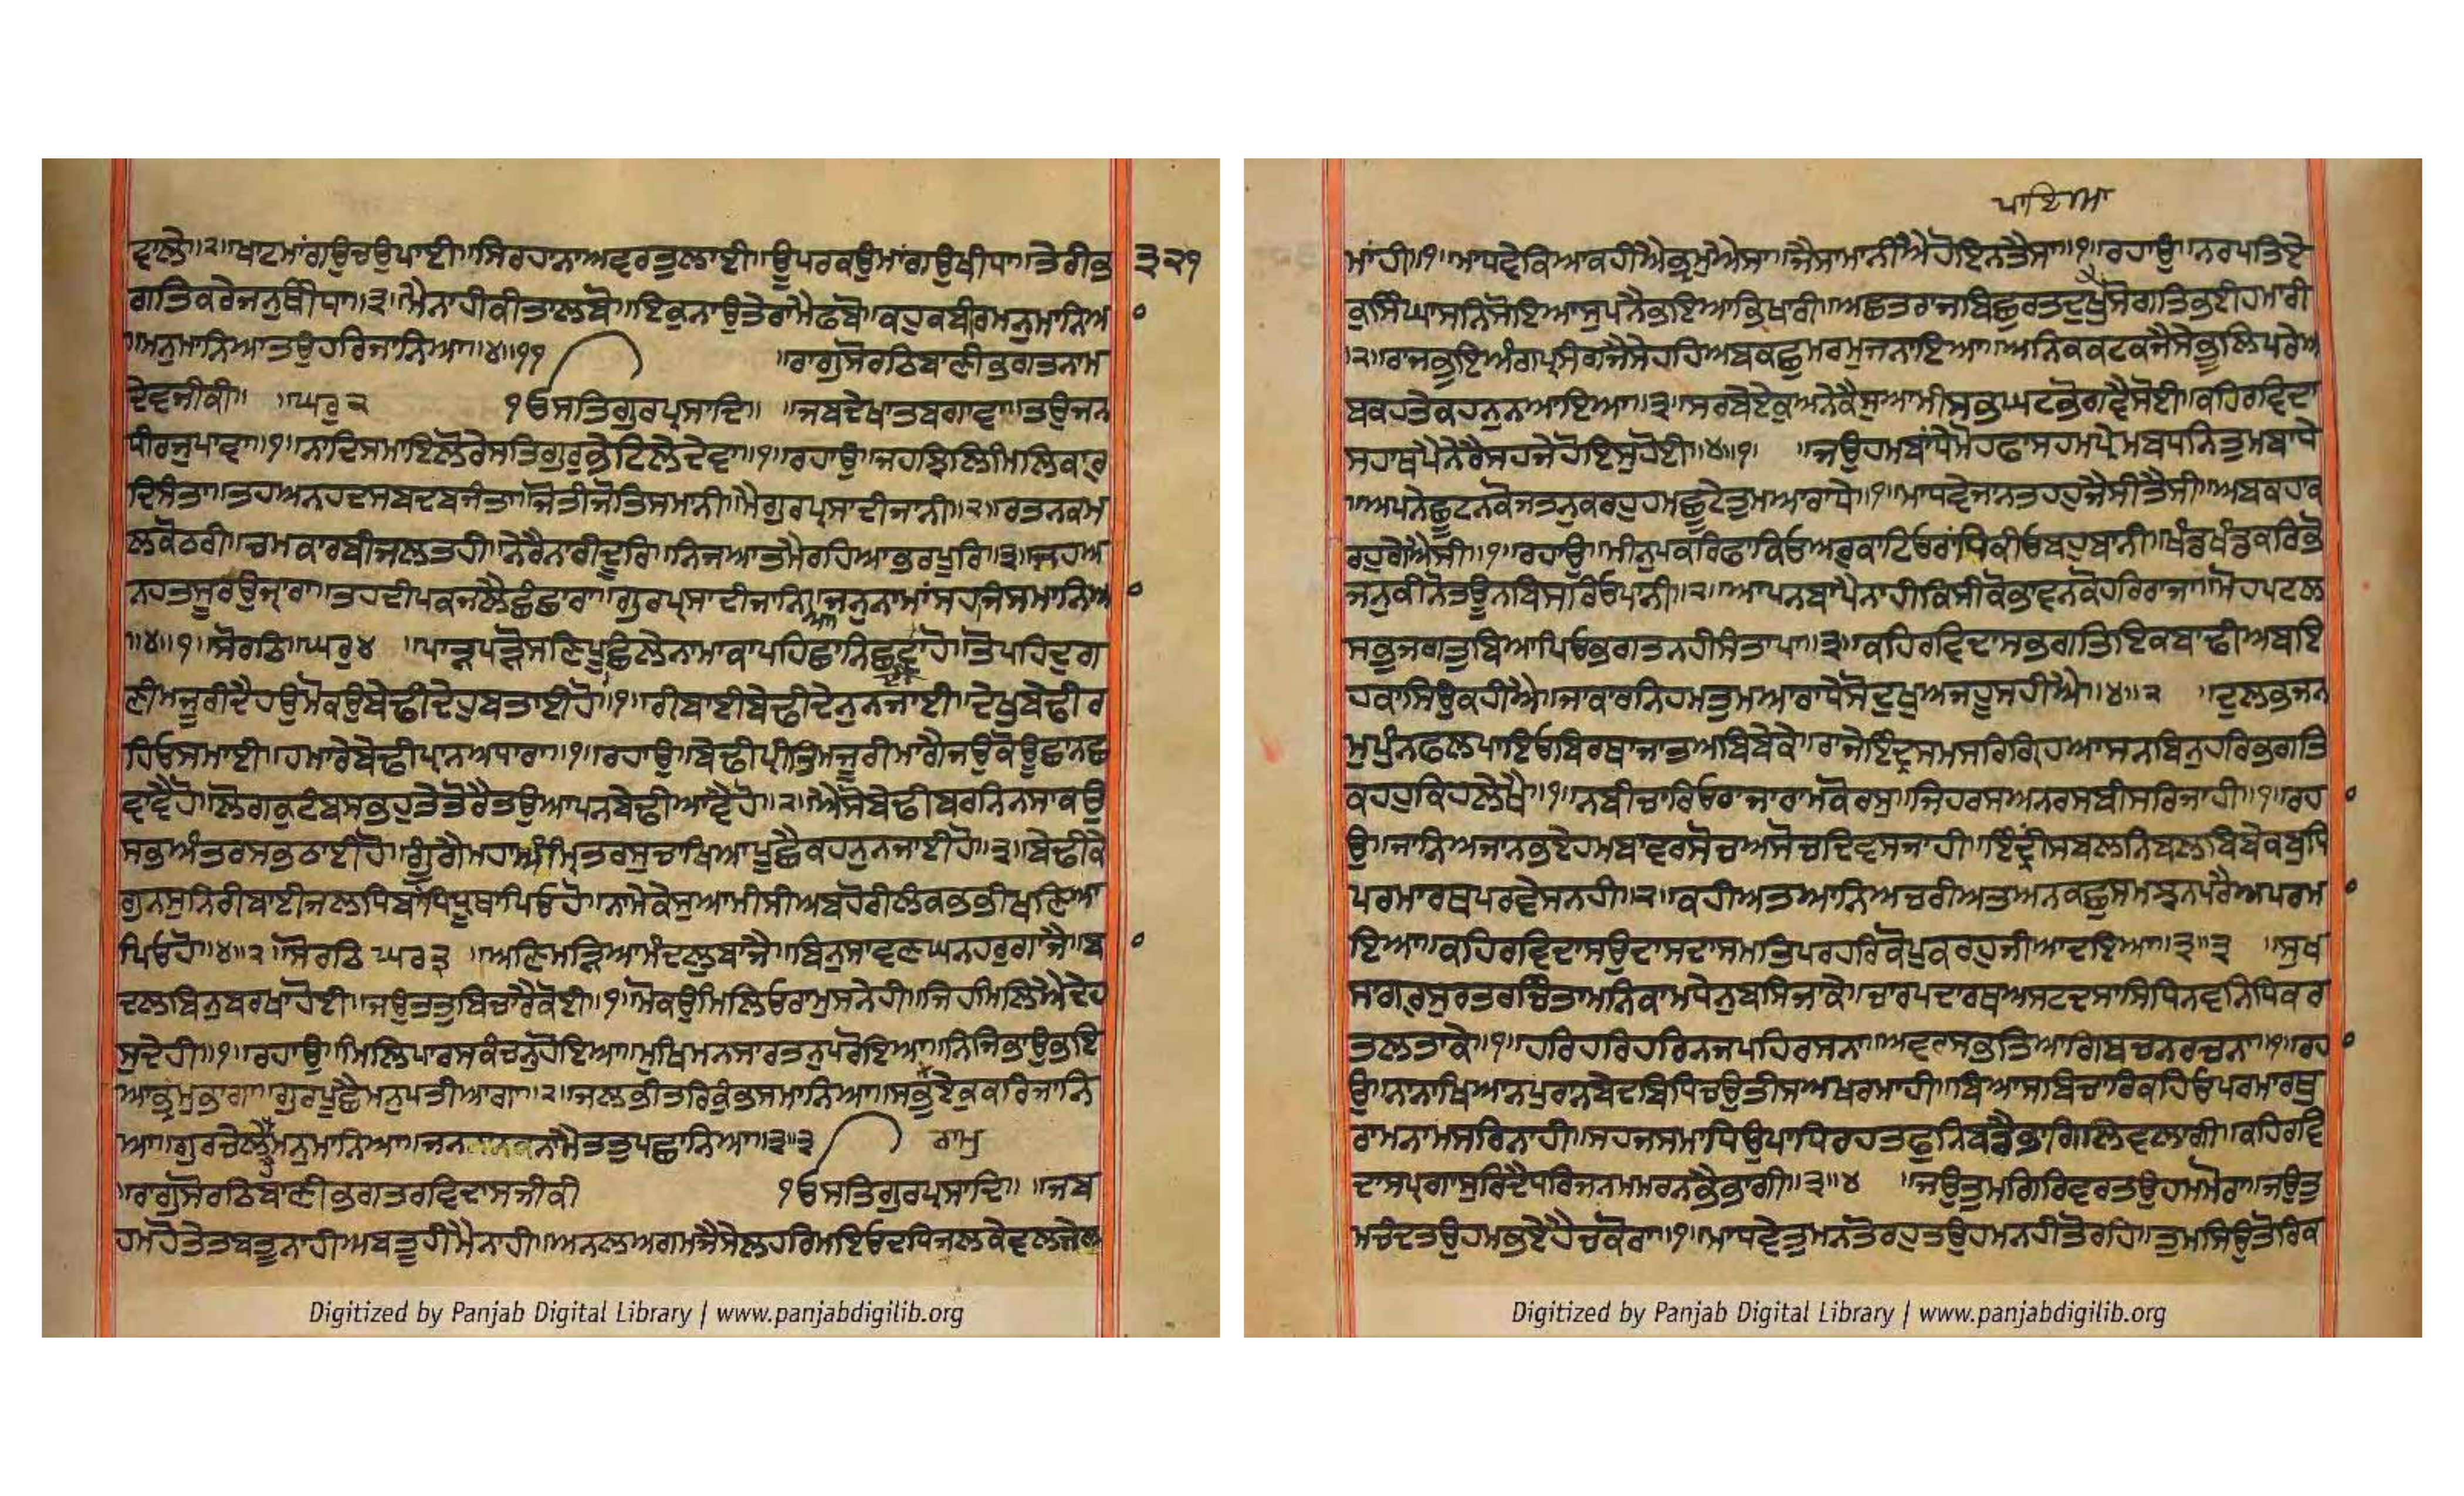 ਵਾਲੇ॥੨॥ਖਾਟਮਾਂਗਉਚਉਪਾਈ॥ਸਿਰਹਾਨਾਅਵਰਤੁਲਾਈ॥ਊਪਰਕਉਮਾਂਗਉਖੀਂਧਾ॥ਤੇਰੀਭ
੩੨੧
ਗਤਿਕਰੇਜਨੁਥੀਧਾ॥੩॥ਮੈਨਾਹੀਕੀਤਾਲਬੋ॥ਇਕੁਨਾਉਤੇਰਾਮੈਫਬੋ॥ਕਹੁਕਬੀਰਮਨੁਮਾਨਿਆ
॥ਮਨੁਮਾਨਿਆਤਉਹਰਿਜਾਨਿਆ॥੪॥੧੧ ॥ਰਾਗੁਸੋਰਠਿਬਾਣੀਭਗਤਨਾਮ
ਦੇਵਜੀਕੀ॥ ॥ਘਰੁ੨ ੴਸਤਿਗੁਰਪ੍ਰਸਾਦਿ॥ ॥ਜਬਦੇਖਾਤਬਗਾਵਾ॥ਤਉਜਨ
ਧੀਰਜੁਪਾਵਾ॥੧॥ਨਾਦਿਸਮਾਇਲੋਰੇਸਤਿਗੁਰੁਭੇਟਿਲੇਦੇਵਾ॥੧॥ਰਹਾਉ॥ਜਹਝਿਲਿਮਿਲਿਕਾਰੁ
ਦਿਸੰਤਾ॥ਤਹਅਨਹਦਸਬਦਬਜੰਤਾ॥ਜੋਤੀਜੋਤਿਸਮਾਨੀ॥ਮੈਗੁਰਪ੍ਰਸਾਦੀਜਾਨੀ॥੨॥ਰਤਨਕਮ
ਲਕੋਠਰੀ॥ਚਮਕਾਰਬੀਜਲਤਹੀ॥ਨੇਰੈਨਾਹੀਦੂਰਿ॥ਨਿਜਆਤਮੈਰਹਿਆਭਰਪੂਰਿ॥੩॥ਜਹਅ
ਨਹਤਸੂਰਉਜ੍ਯਾਰਾ॥ਤਹਦੀਪਕਜਲੈਛੰਛਾਰਾ॥ਗੁਰਪ੍ਰਸਾਦੀਜਾਨਿਆ॥ਜਨੁਨਾਮਾਂਸਹਜਿਸਮਾਨਿਆ
॥੪॥੧॥ਸੋਰਠਿ॥ਘਰੁ੪ ॥ਪਾੜਪੜੋਸਣਿਪੂਛਿਲੇਨਾਮਾਕਾਪਹਿਛਾਨਿਛਵਾਈਹੋ॥ਤੋਪਹਿਦੁਗ
ਣੀਮਜੂਰੀਦੈਹਉਮੋਕਉਬੇਢੀਦੇਹੁਬਤਾਈਹੋ॥੧॥ਰੀਬਾਈਬੇਢੀਦੇਨੁਨਜਾਈ॥ਦੇਖੁਬੇਢੀਰ
ਹਿਓਸਮਾਈ॥ਹਮਾਰੇਬੇਢੀਪ੍ਰਾਨਅਧਾਰਾ॥੧॥ਰਹਾਉ॥ਬੇਢੀਪ੍ਰੀਤਿਮਜੂਰੀਮਾਂਗੈਜਉਕੋਊਛਾਨਛ
ਵਾਵੈਹੋ॥ਲੋਗਕੁਟੰਬਸਭਹੁਤੇਤੋਰੈਤਉਆਪਨਬੇਢੀਆਵੈਹੋ॥੨॥ਐਸੋਬੇਢੀਬਰਨਿਨਸਾਕਉ
ਸਭਅੰਤਰਸਭਠਾਈਹੋ॥ਗੂੰਗੈਮਹਾਅੰਮ੍ਰਿਤਰਸੁਚਾਖਿਆਪੂਛੈਕਹਨੁਨਜਾਈਹੋ॥੩॥ਬੇਢੀਕੇ
ਗੁਨਸੁਨਿਰੀਬਾਈਜਲਧਿਬਾਂਧਿਧ੍ਰੂਥਾਪਿਓਹੋ॥ਨਾਮੇਕੇਸੁਆਮੀਸੀਅਬਹੋਰੀਲੰਕਭਭੀਖਣਿਆ
ਪਿਓਹੋ॥੪॥੨॥ਸੋਰਠਿ ਘਰ੩ ॥ਅਣਿਮੜਿਆਮੰਦਲੁਬਾਜੈ॥ਬਿਨੁਸਾਵਣਘਨਹਰੁਗਾਜੈ॥ਬਾ
ਦਲਬਿਨੁਬਰਖਾਹੋਈ॥ਜਉਤਤੁਬਿਚਾਰੈਕੋਈ॥੧॥ਮੋਕਉਮਿਲਿਓਰਾਮੁਸਨੇਹੀ॥ਜਿਹਮਿਲਿਐਦੇਹ
ਸੁਦੇਹੀ॥੧॥ਰਹਾਉ॥ਮਿਲਿਪਾਰਸਕੰਚਨੁਹੋਇਆ॥ਮੁਖਿਮਨਸਾਰਤਨੁਪਰੋਇਆ॥ਨਿਜਿਭਾਉਭਇ
ਆਭ੍ਰਮੁਭਾਗਾ॥ਗੁਰਪੂਛੈਮਨੁਪਤੀਆਗਾ॥੨॥ਜਲਭੀਤਰਿਕੁੰਭਸਮਾਨਿਆ॥ਸਭੁਏਕੁਕਰਿਜਾਨਿ
ਆ॥ਗੁਰਚੇਲੈਮਨੁਮਾਨਿਆ॥ਜਨਨਾਮੈਤਤੁਪਛਾਨਿਆ॥੩॥੩ ਰਾਮੁ
॥ਰਾਗੁਸੋਰਠਿਬਾਣੀਭਗਤਰਵਿਦਾਸਜੀਕੀ ੴਸਤਿਗੁਰਪ੍ਰਸਾਦਿ॥ ॥ਜਬ
ਹਮਹੋਤੇਤਬਤੂਨਾਹੀਅਬਤੂਹੀਮੈਨਾਹੀ॥ਅਨਲਅਗਮਜੈਸੇਲਹਰਿਮਇਓਦਧਿਜਲਕੇਵਲਜਲ
ਪਾਇਆ
ਮਾਂਹੀ॥੧॥ਮਾਧਵੇਕਿਆਕਹੀਐਭ੍ਰਮੁਐਸਾ॥ਜੈਸਾਮਾਨੀਐਹੋਇਨਤੈਸਾ॥੧॥ਰਹਾਉ॥ਨਰਪਤਿਏ
ਕੁਸਿੰਘਾਸਨਿਸੋਇਆਸੁਪਨੈਭਇਆਭਿਖਾਰੀ॥ਅਛਤਰਾਜਬਿਛੁਰਤਦੁਖੁਸੋਗਤਿਭਈਹਮਾਰੀ
॥੨॥ਰਾਜਭੁਇਅੰਗਪ੍ਰਸੰਗਜੈਸੇਹਹਿਅਬਕਛੁਮਰਮੁਜਨਾਇਆ॥ਅਨਿਕਕਟਕਜੈਸੇਭੂਲਿਪਰੇਅ
ਬਕਹਤੇਕਹਨੁਨਆਇਆ॥੩॥ਸਰਬੇਏਕੁਅਨੇਕੈਸੁਆਮੀਸਭਘਟਭੋਗਵੈਸੋਈ॥ਕਹਿਰਵਿਦਾ
ਸਹਾਥਪੈਨੇਰੈਸਹਜੇਹੋਇਸੁਹੋਈ॥੪॥੧॥ ॥ਜਉਹਮਬਾਂਧੇਮੋਹਫਾਸਹਮਪ੍ਰੇਮਬਧਨਿਤੁਮਬਾਧੇ
॥ਅਪਨੇਛੂਟਨਕੋਜਤਨੁਕਰਹੁਹਮਛੂਟੇਤੁਮਆਰਾਧੇ॥੧॥ਮਾਧਵੇਜਾਨਤਹਹੁਜੈਸੀਤੈਸੀ॥ਅਬਕਹਾਕ
ਰਹੁਗੇਐਸੀ॥੧॥ਰਹਾਉ॥ਮੀਨੁਪਕਰਿਫਾਂਕਿਓਅਰੁਕਾਟਿਓਰਾਂਧਿਕੀਓਬਹੁਬਾਨੀ॥ਖੰਡਖੰਡਕਰਿਭੋ
ਜਨੁਕੀਨੋਤਊਨਬਿਸਰਿਓਪਾਨੀ॥੨॥ਆਪਨਬਾਪੈਨਾਹੀਕਿਸੀਕੋਭਾਵਨਕੋਹਰਿਰਾਜਾ॥ਮੋਹਪਟਲ
ਸਭੁਜਗਤੁਬਿਆਪਿਓਭਗਤਨਹੀਸੰਤਾਪਾ॥੩॥ਕਹਿਰਵਿਦਾਸਭਗਤਿਇਕਬਾਢੀਅਬਇ
ਹਕਾਸਿਉਕਹੀਐ॥ਜਾਕਾਰਨਿਹਮਤੁਮਆਰਾਧੇਸੋਦੁਖੁਅਜਹੂਸਹੀਐ॥੪॥੨ ॥ਦੁਲਭਜਨ
ਮੁਪੁੰਨਫਲਪਾਇਓਬਿਰਥਾਜਾਤਅਬਿਬੇਕੇ॥ਰਾਜੇਇੰਦ੍ਰਸਮਸਰਿਗ੍ਰਿਹਆਸਨਬਿਨੁਹਰਿਭਗਤਿ
ਕਹਹੁਕਿਹਲੇਖੈ॥੧॥ਨਬੀਚਾਰਿਓਰਾਜਾਰਾਮਕੋਰਸੁ॥ਜਿਹਰਸਅਨਰਸਬੀਸਰਿਜਾਹੀ॥੧॥ਰਹਾ
ਉ॥ਜਾਨਿਅਜਾਨਭਏਹਮਬਾਵਰਸੋਚਅਸੋਚਦਿਵਸਜਾਹੀ॥ਇੰਦ੍ਰੀਸਬਲਨਿਬਲਬਿਬੇਕਬੁਧਿ
ਪਰਮਾਰਥਪਰਵੇਸਨਹੀ॥੨॥ਕਹੀਅਤਆਨਿਅਚਰੀਅਤਅਨਕਛੁਸਮਝਨਪਰੈਅਪਰਮਾ
ਇਆ॥ਕਹਿਰਵਿਦਾਸਉਦਾਸਦਾਸਮਤਿਪਰਹਰਿਕੋਪੁਕਰਹੁਜੀਆਦਇਆ॥੩॥੩ ॥ਸੁਖ
ਸਾਗਰੁਸੁਰਤਰਚਿੰਤਾਮਨਿਕਾਮਧੇਨੁਬਸਿਜਾਕੇ॥ਚਾਰਪਦਾਰਥਅਸਟਦਸਾਸਿਧਿਨਵਨਿਧਿਕਰ
ਤਲਤਾਕੇ॥੧॥ਹਰਿਹਰਿਹਰਿਨਜਪਹਿਰਸਨਾ॥ਅਵਰਸਭਤਿਆਗਿਬਚਨਰਚਨਾ॥੧॥ਰਹਾ
ਉ॥ਨਾਨਾਖਿਆਨਪੁਰਾਨਬੇਦਬਿਧਿਚਉਤੀਸਅਖਰਮਾਹੀ॥ਬਿਆਸਬਿਚਾਰਿਕਹਿਓਪਰਮਾਰਥੁ
ਰਾਮਨਾਮਸਰਿਨਾਹੀ॥ਸਹਜਸਮਾਧਿਉਪਾਧਿਰਹਤਫੁਨਿਬਡੈਭਾਗਿਲਿਵਲਾਗੀ॥ਕਹਿਰਵਿ
ਦਾਸਪ੍ਰਗਾਸੁਰਿਦੈਧਰਿਜਨਮਮਰਨਭੈਭਾਗੀ॥੩॥੪ ॥ਜਉਤੁਮਗਿਰਿਵਰਤਉਹਮਮੋਰਾ॥ਜਉਤੁ
ਮਚੰਦਤਉਹਮਭਏਹੈਚਕੋਰਾ॥੧॥ਮਾਧਵੇਤੁਮਨਤੋਰਹੁਤਉਹਮਨਹੀਤੋਰਹਿ॥ਤੁਮਸਿਉਤੋਰਿਕ
Digitized by Panjab Digital Library | www.panjabdigilib.org
Digitized by Panjab Digital Library | www.panjabdigilib.org